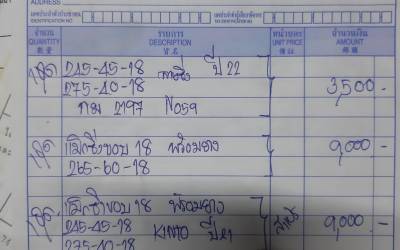 ADDRESS
เลขประจำตัวประชาชน
เลขประจำตัวผู้เสียภาษีอากร
จำนวน
QUANTITY
數量
รายการ
DESCRIPTION
貨名
หน่วยละ
UNIT PRICE
價銀
จำนวนเงิน
AMOUNT
銀碼
1ชุด 245-45-18 ปี 22
275-40-18 3,500 -
2197 N059
1ชุด แม็กซิ่งขอบ 18 พร้อมยาง 9,000 -
265-60-18
1ชุด แม็กซิ่งขอบ 18 พร้อมยาง
245-45-18 KINTO ปี 21 9,000 -
275-40-18